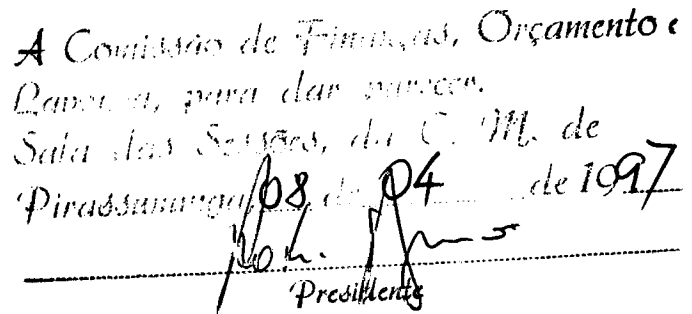 A Comissão de Finanças, Orçamento e
Lavoura, para dar parecer.
Sala das Sessões, da C. M. de
Pirassununga, 08 de 04 de 1997
Presidente